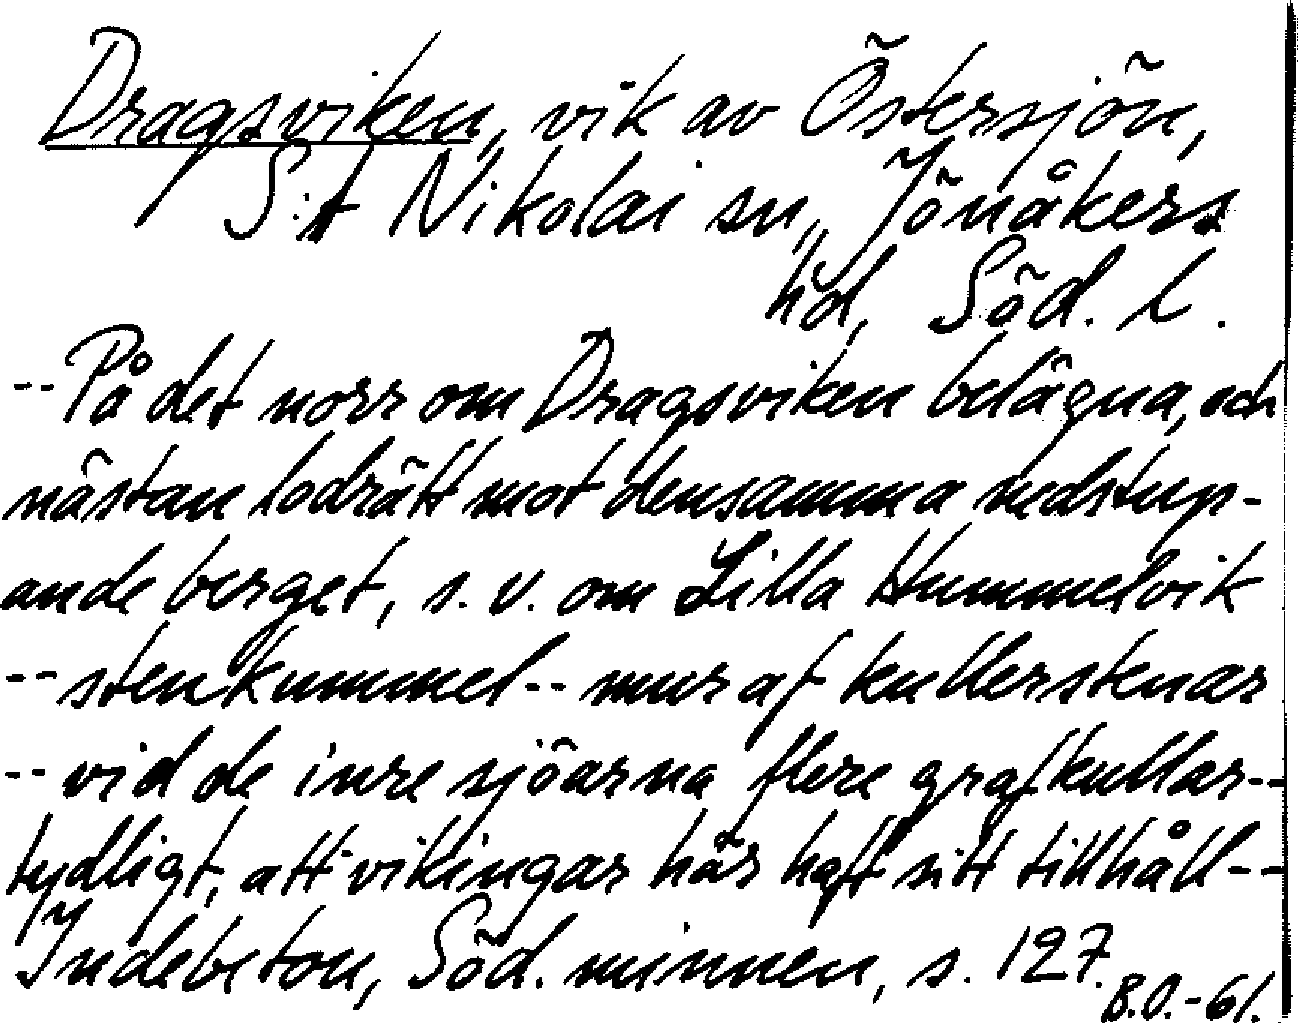 Dragsviken, vik av Östersjön,
S:t Nikolai sn, Jönåkers
hd, Söd. l.
-- På det norr om Dragsviken belägna, och
nästan lodrätt mot densamma nedstup-
ande berget, s. v. om Lilla Hummelvik
-- stenkummel -- mur af kullerstenar
-- vid de inre sjöarna flere grafkullar --
tydligt, att vikingar här haft sitt tillhåll --
Indebetou, Söd. minnen, s. 127.
B.O. - 61.